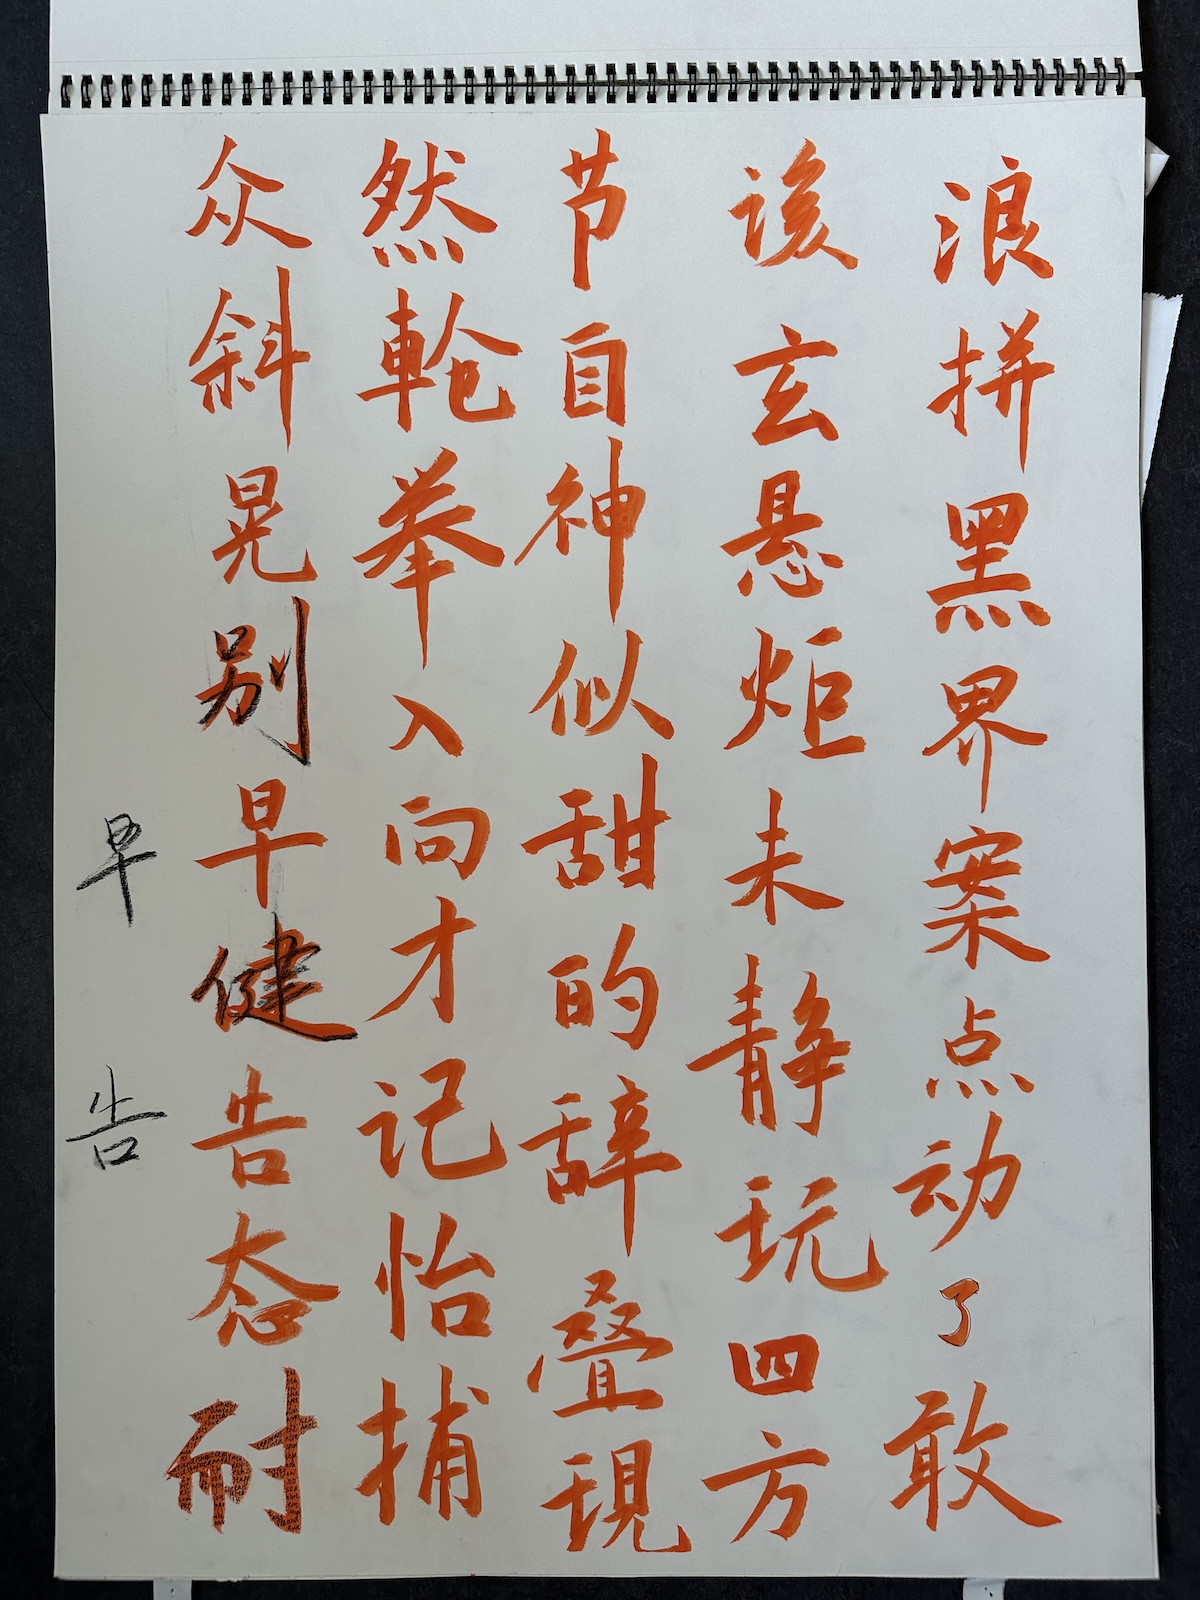 浪拼黑界案点动了敢
该玄悬炬未静玩四方
节自神似甜的辞叠現
然举入向才记怡捕
众斜晃别早健告态耐
早告